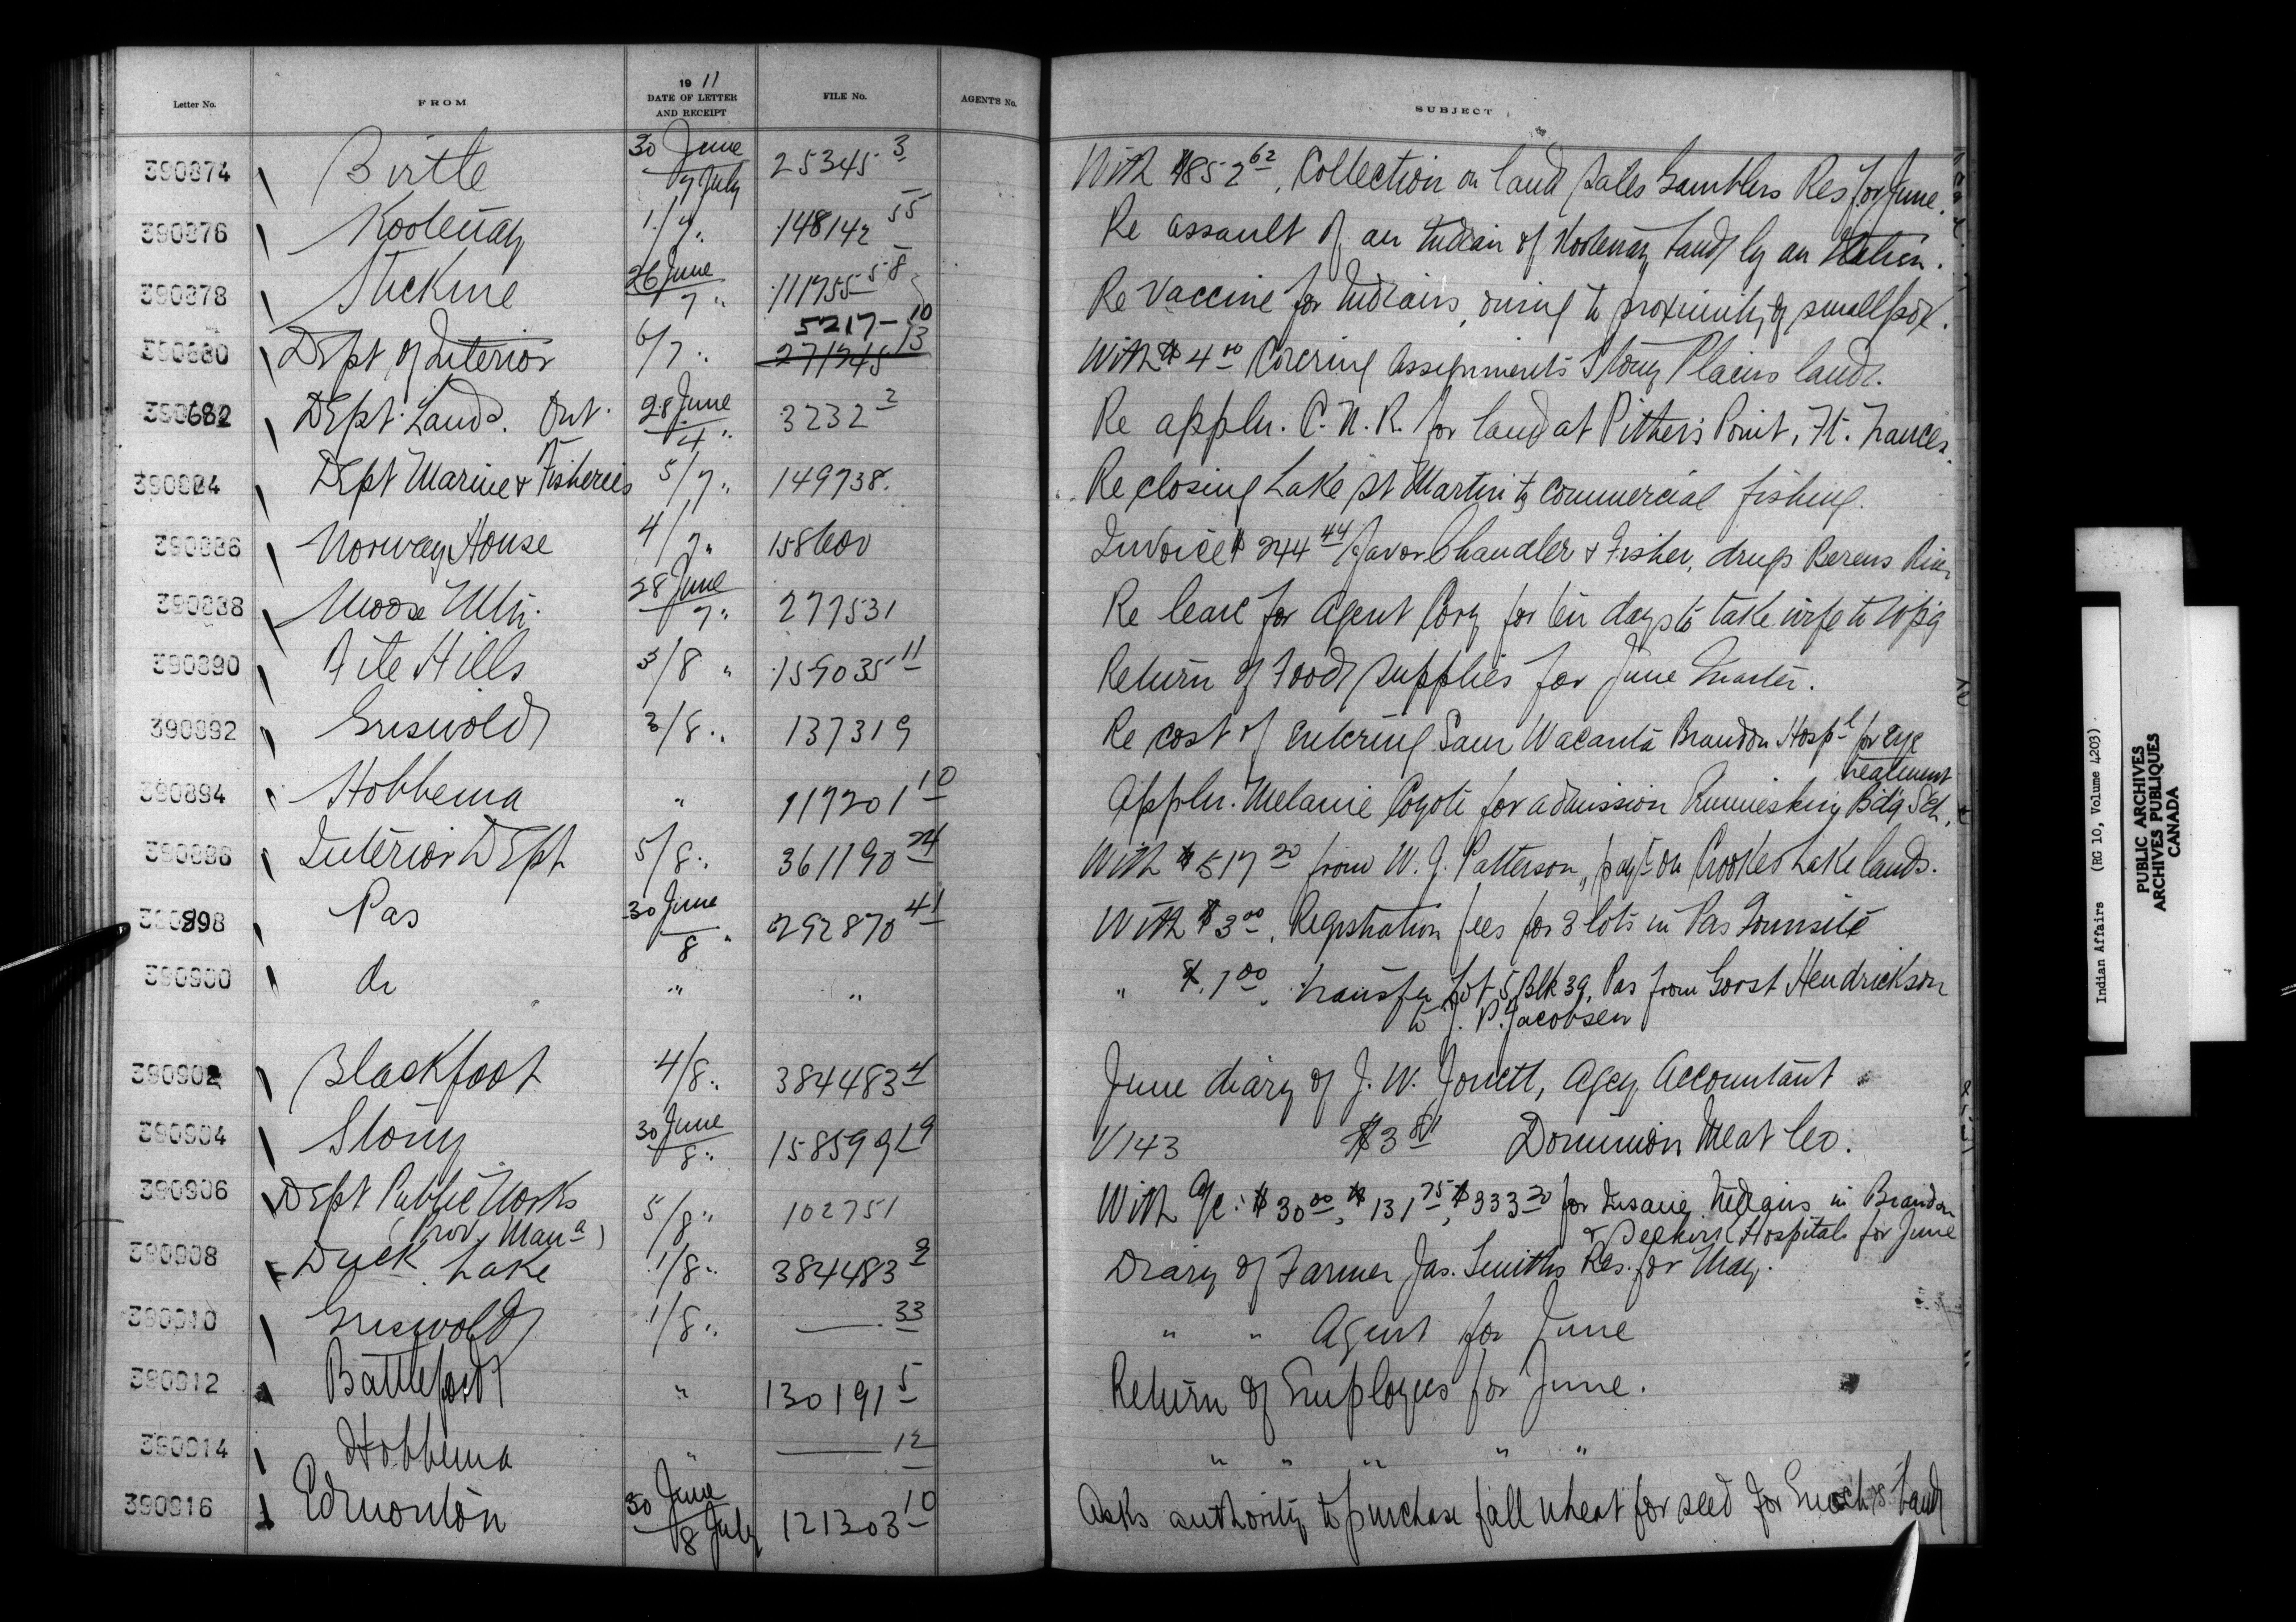 Letter No. FROM 19 11 DATE OF LETTER AND RECEIPT FILE No. AGENT'S No. SUBJECT
390874 Birtle 30 June / 7 July 25345 3 With $852 62, Collection on land sales Gamblers Res for June.
390876 Kootenay 1/7 " 148142 55 Re assault of an Indian of Kootenay Band by an Italian.
390878 Stickine 26 June / 7 " 111755 58 Re Vaccine for Indians, owing to proximity of smallpox.
5217-10
390880 Dept of Interior 6/7 " 271745 13 With $4 00 Covering Assignments Stony Plains lands.
390882 Dept. Lands. Ont. 28 June / 4 " 3232 2 Re appln. C.N.R. for land at Pither's Point, Ft. Frances.
390884 Dept Marine & Fisheries 5/7 " 149738. Re closing Lake St Martin to Commercial fishing.
390886 Norway House 4/7 " 158600 Invoice $244 44 favor Chandler & Fisher, drugs Berens River
390888 Moose Mtn. 28 June / 7 " 277531 Re leave for Agent Cory for ten days to take wife to Wpg
390890 File Hills 3/8 " 159035 11 Return of Food supplies for June Quarter.
390892 Griswold 3/8 " 137319 Re cost of entering Sam Wacanta Brandon Hosp l for eye
treatment
390894 Hobbema " 117201 10 Appln. Melanie Coyote for admission Ermineskin Bdg Sch.
390896 Interior Dept 5/8 " 361190 24 With $517 20 from W. J. Patterson, payt on Crooked Lake lands.
390898 Pas 30 June / 8 " 292870 41 With $3 00, Registration fees for 3 lots in Pas Townsite
390900 do " " " $1 00, transfer Lot 5 Blk 39, Pas from Gorst Hendrickson
to J. P. Jacobsen
390902 Blackfoot 4/8 " 384483 4 June diary of J. W. Jowett, Agcy Accountant
390904 Stony 30 June / 8 " 158599 19 V143 $3 81 Dominion Meat Co.
390906 Dept Public Works 5/8 " 102751 With a/c: $30 00, $131 75, $333 20 for Insane Indians in Brandon
(Prov Man a) & Selkirk Hospitals for June
390908 Duck Lake 1/8 " 384483 2 Diary of Farmer Jas. Smiths Res. for May.
390910 Griswold 1/8 " — 33 " " Agent for June
390912 Battleford " 130191 5 Return of Employees for June.
390914 Hobbema " — 12 " " " " "
390916 Edmonton 30 June / 8 July 121303 10 Asks authority to purchase fall wheat for seed for Enoch's Band
Indian Affairs (RG 10, Volume 4203)
PUBLIC ARCHIVES
ARCHIVES PUBLIQUES
CANADA